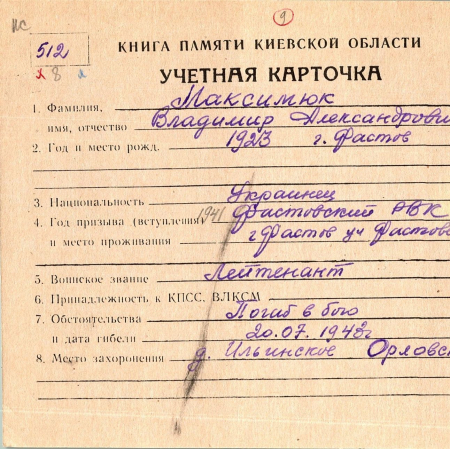 ис
9
512
КНИГА ПАМЯТИ КИЕВСКОЙ ОБЛАСТИ
8
УЧЕТНАЯ КАРТОЧКА
1. Фамилия, Максимюк
имя, отчество Владимир Александрович
2. Год и место рожд. 1923 г. Фастов
3. Национальность Украинец
4. Год призыва (вступления) 1941 Фастовский РВК
и место проживания г Фастов ул Фастовс
5. Воинское звание Лейтенант
6. Принадлежность к КПСС, ВЛКСМ
7. Обстоятельства Погиб в бою
и дата гибели 20.07.1943г
8. Место захоронения д. Ильинское Орловск